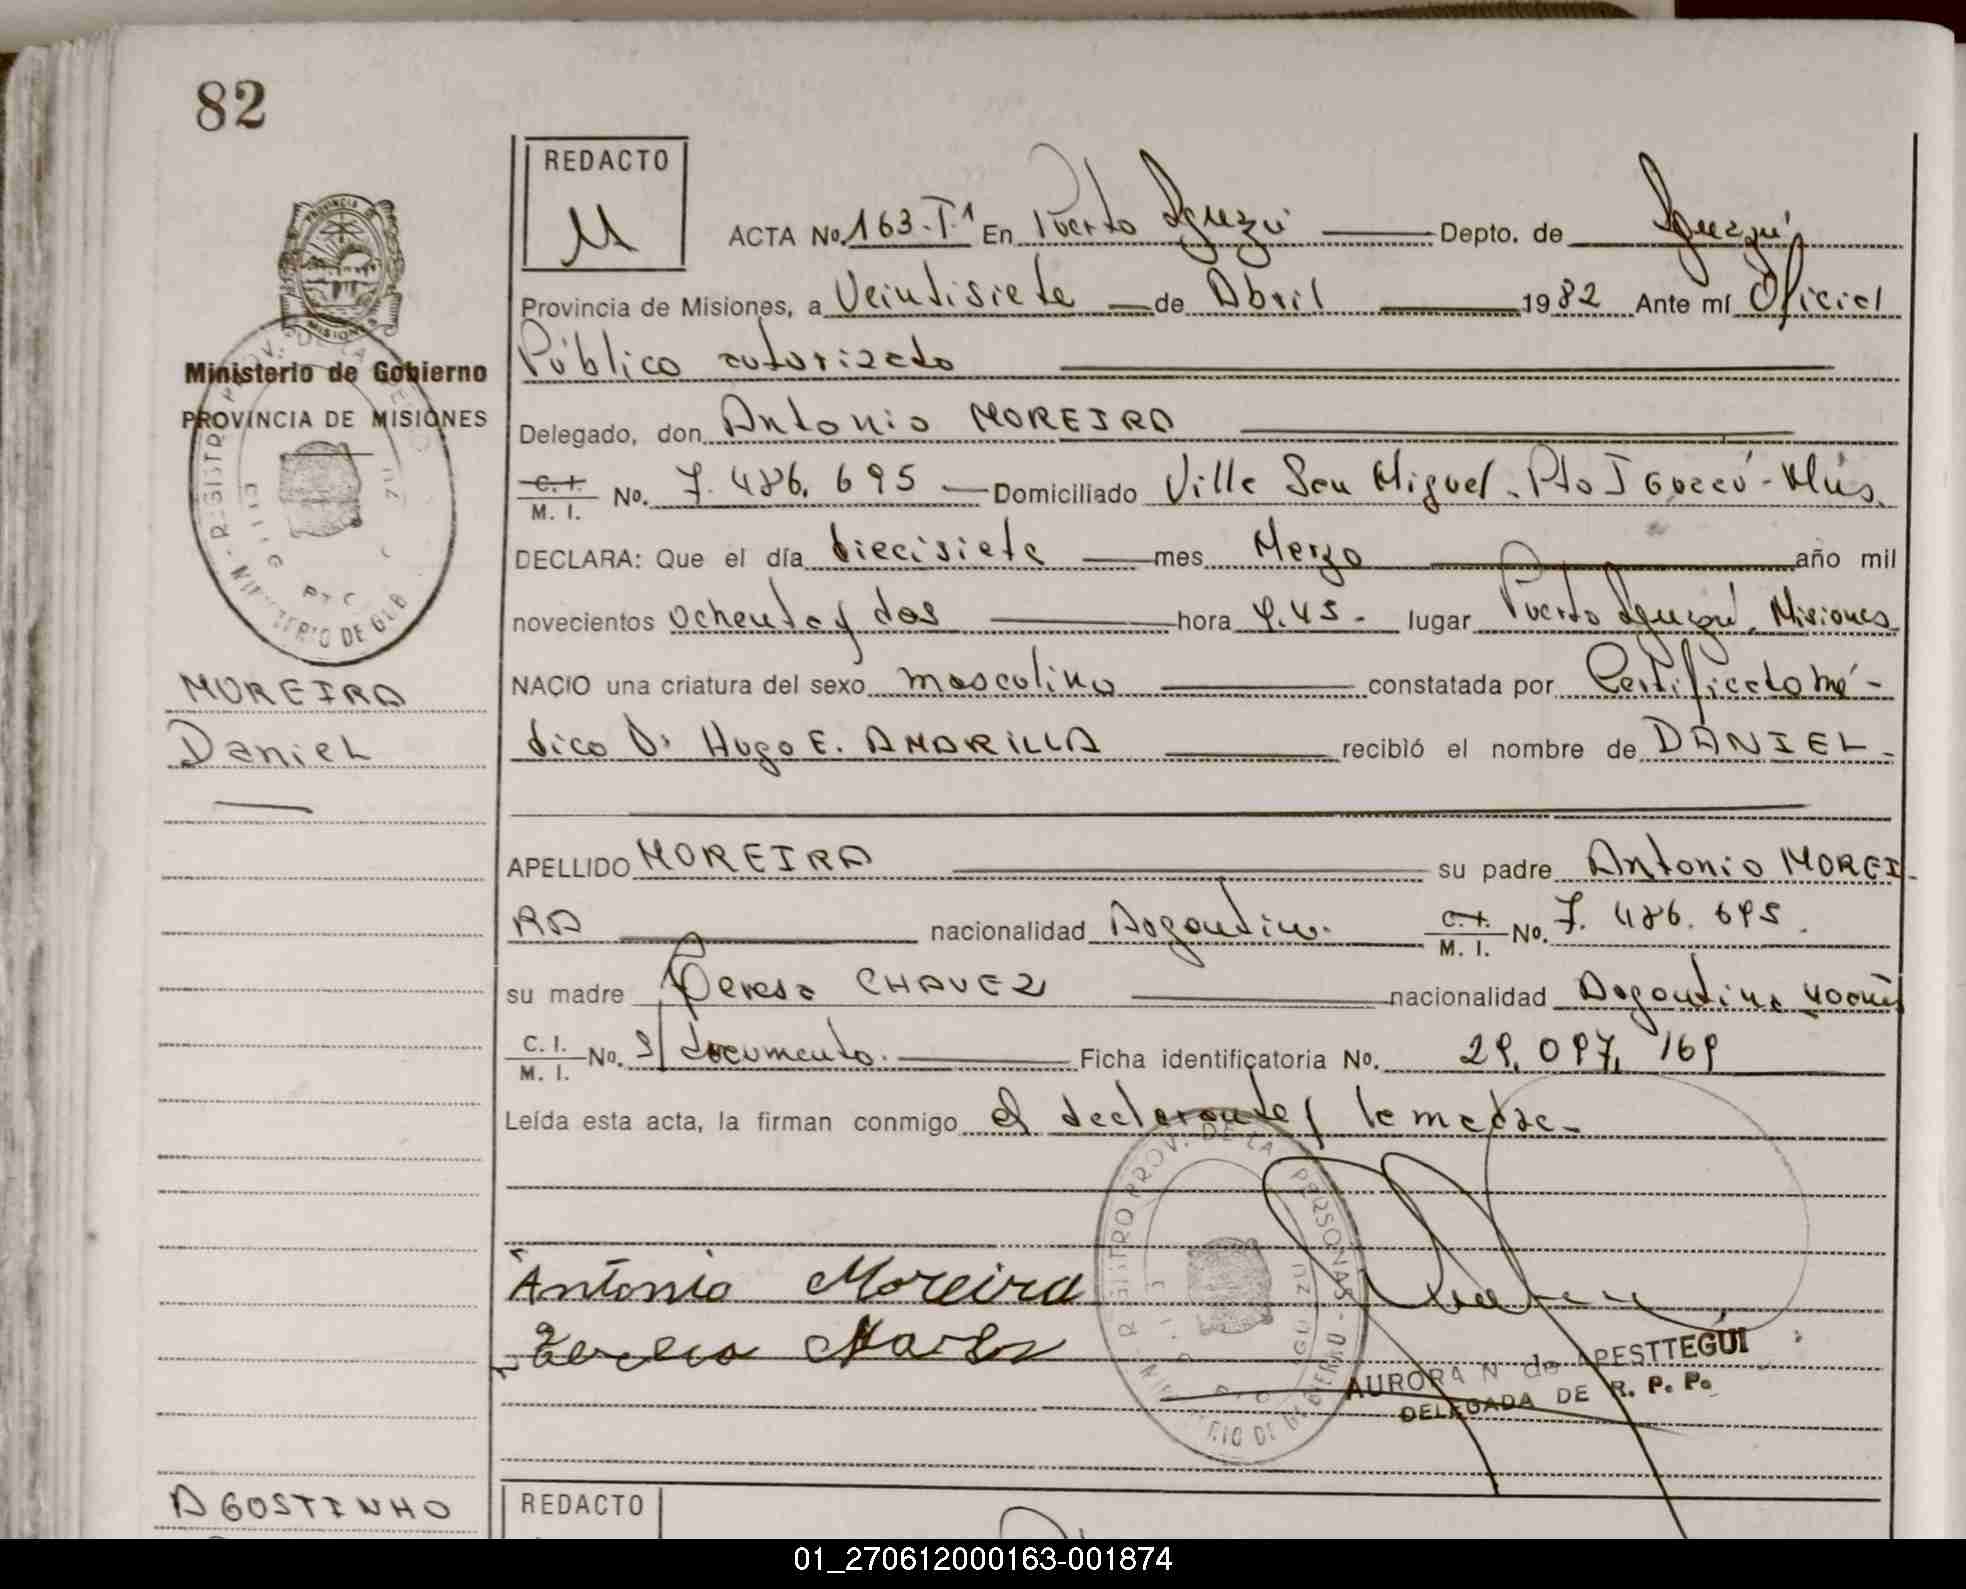 82
REDACTO
M
ACTA No. 163-T.1 En Puerto Iguazú Depto. de Iguazú
Provincia de Misiones, a Veintisiete de Abril 1982 Ante mí Oficial
Público autorizado
Ministerio de Gobierno
PROVINCIA DE MISIONES
Delegado, don Antonio MOREIRA
C. I. M. I. No. 7.486.695 Domiciliado Villa San Miguel - Pto IGuazú - Mns.
DECLARA: Que el día diecisiete mes Marzo año mil
novecientos ochenta y dos hora 4.45. lugar Puerto Iguazú, Misiones
NACIO una criatura del sexo masculino constatada por Certificado mé-
dico Dr Hugo E. AMARILLA recibió el nombre de DANIEL.
MOREIRA
Daniel
APELLIDO MOREIRA su padre Antonio MOREI-
RA nacionalidad Argentino. C. I. M. I. No. 7.486.695.
su madre Teresa CHAVEZ nacionalidad Argentina
C. I. M. I. No. s/ documento. Ficha identificatoria No. 29.097.169
Leída esta acta, la firman conmigo el declarante y la madre.
REGISTRO PROV. DE LA PERSONAS - MINISTERIO DE GOBIERNO
Antonio Moreira
AURORA N de APESTTEGUI
DELEGADA DE R. P. P.
AGOSTINHO
REDACTO
01_270612000163-001874